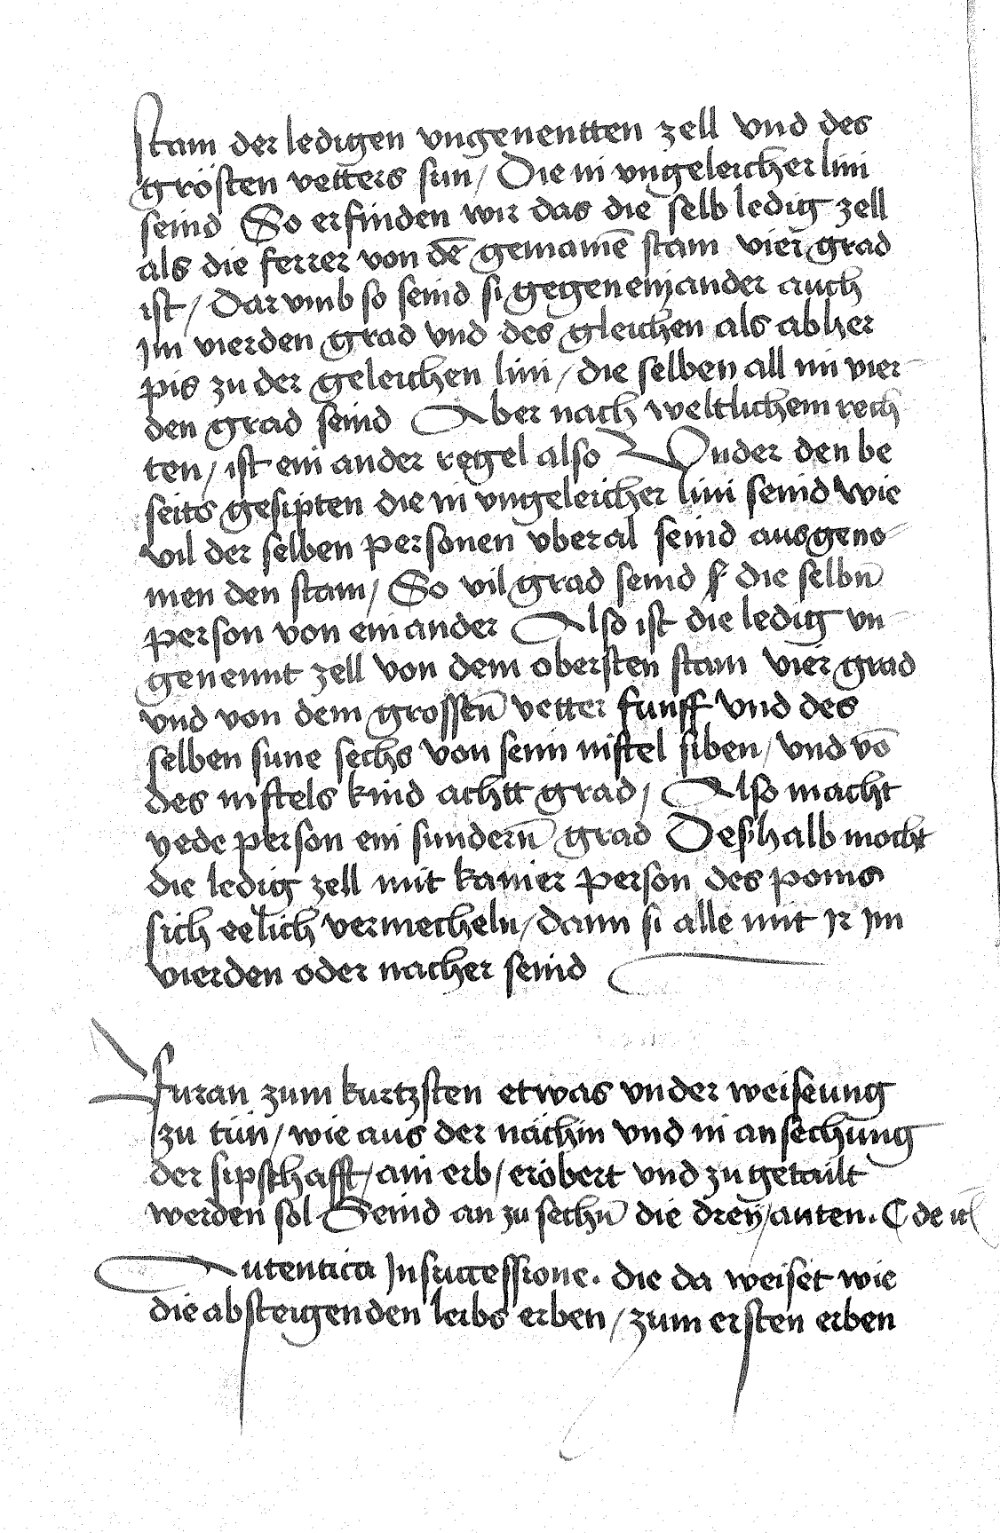 stam der ledigen vngenentten zell vnd des
grösten vetters sun / Die in vngeleicher lini
seind So erfinden wir das die selb ledig zell
als die ferrer von dē gemainē stam vier grad
ist / Dar vmb so seind si gegen einander auch
Im vierden grad vnd des gleichen als abher
pis zu der geleichen lini / die selben all im vier
den grad seind Aber nach weltlichem rech
ten / ist ein ander regel also Vnder den be
seits gesipten die in vngeleicher lini seind wie
vil der selben personen vberal seind ausgeno
men den stam / So vil grad seind die selbn̄
person von einander Also ist die ledig vn
genennt zell von dem obersten stam vier grad
vnd von dem grossen̄ vetter funff vnd des
selben sune sechs von seim niftel siben / vnd vō
des niftels kind achtt grad / Also macht
yede person ein sundern̄ grad Deshalb mocht
die ledig zell mit kainer person des poms
sich eelich vermecheln / dann si alle mit Ir Im
vierden oder nacher seind
Furan zum kurtzsten etwas vnder weisung
zu tün / wie aus der nächin vnd in ansechung
der sipschafft / ain erb / erobert vnd zu getailt
werden sol Seind an zu sechn̄ die drey / auten. C de
Autentica In successione. die da weiset wie
die absteigenden leibs erben / zum ersten erben